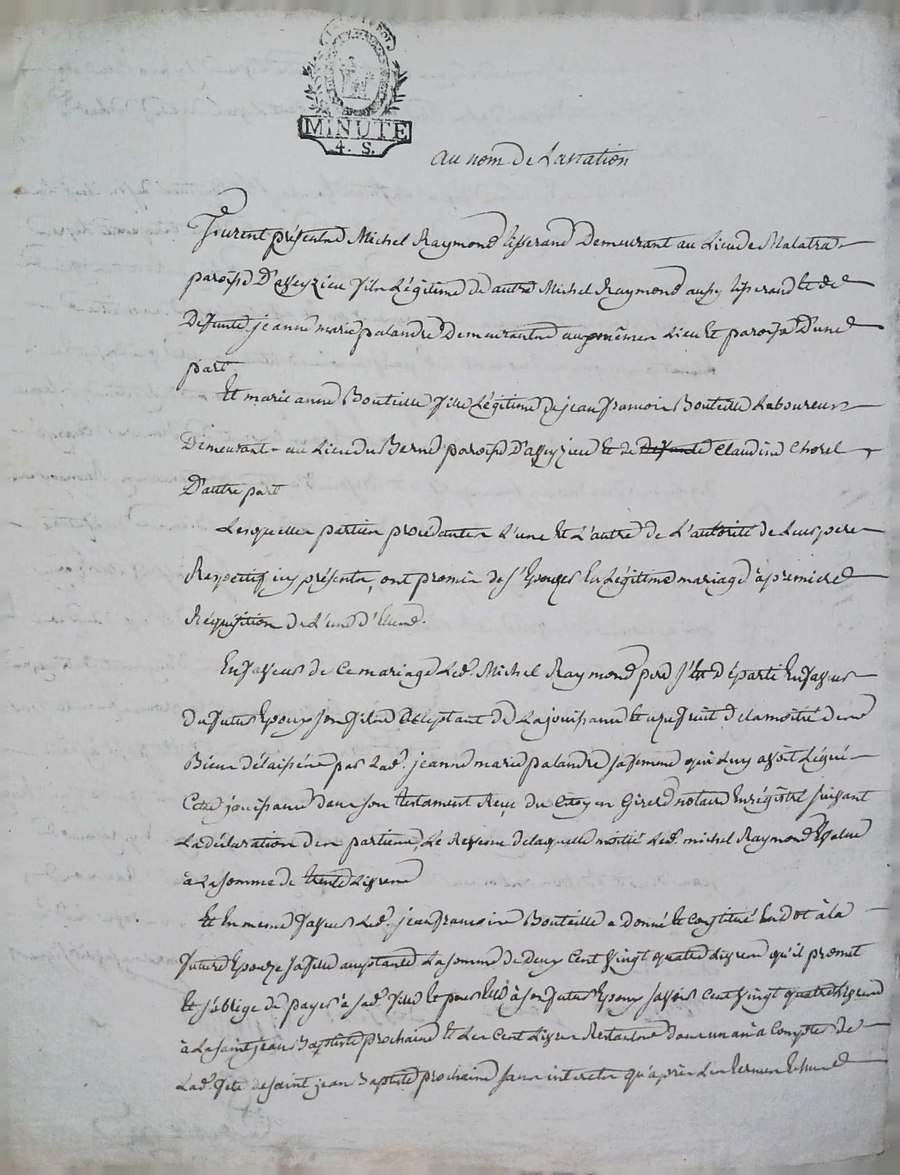 MINUTE
4. S.
au nom de la nation
furent présents Michel Raymond tisserand Demeurant au Lieu de Malatra
paroisse D'assyzieu fils Légitime de autre Michel Raymond aussy tisserand et de
Deffunte jeanne marie palandre Demeurants aux mêmes Lieu et paroisse D'une
part
Et marie anne Bouteille fille Légitime de jean francois Bouteille Laboureur
Demeurant au Lieu du Berne paroisse D'assyzieu et de deffunte Claudine Chorel
D'autre part
Lesquelles parties procedantes L'une et L'autre de L'autorité de Leurs pere
Respectifs icy présents, ont promis de s'Epouser En Légitime mariage à premiere
Réquisition de L'une d'Elles.
En faveur de ce mariage Led. Michel Raymond pere s'est départi En faveur
du futur Epoux son fils acceptant de La jouissance et usufruit de la moitié des
Biens délaissés par Lad. jeanne marie palandre sa femme qui Luy avoit Légué
Cette jouissance dans son testament Reçu du Citoyen Girerd notaire Enrégistré suivant
La déclaration des parties, Le Revenu de laquelle moitié Led. michel Raymond Evalue
à La somme de trente Livres
Et En meme faveur Led. jean francois Bouteille a donné et constitué En dot à la
future Epouze sa fille acceptante La somme de deux Cent vingt quatre Livres qu'il promet
et s'oblige de payer à sad. fille et pour Elle à son futur Epoux savoir cent vingt quatre Livres
à La saint jean Baptiste prochaine et Les Cent Livres Restantes dans un an à Compter de
Lad. fete de saint jean Baptiste prochaine sans interets qu'après Les termes Echus